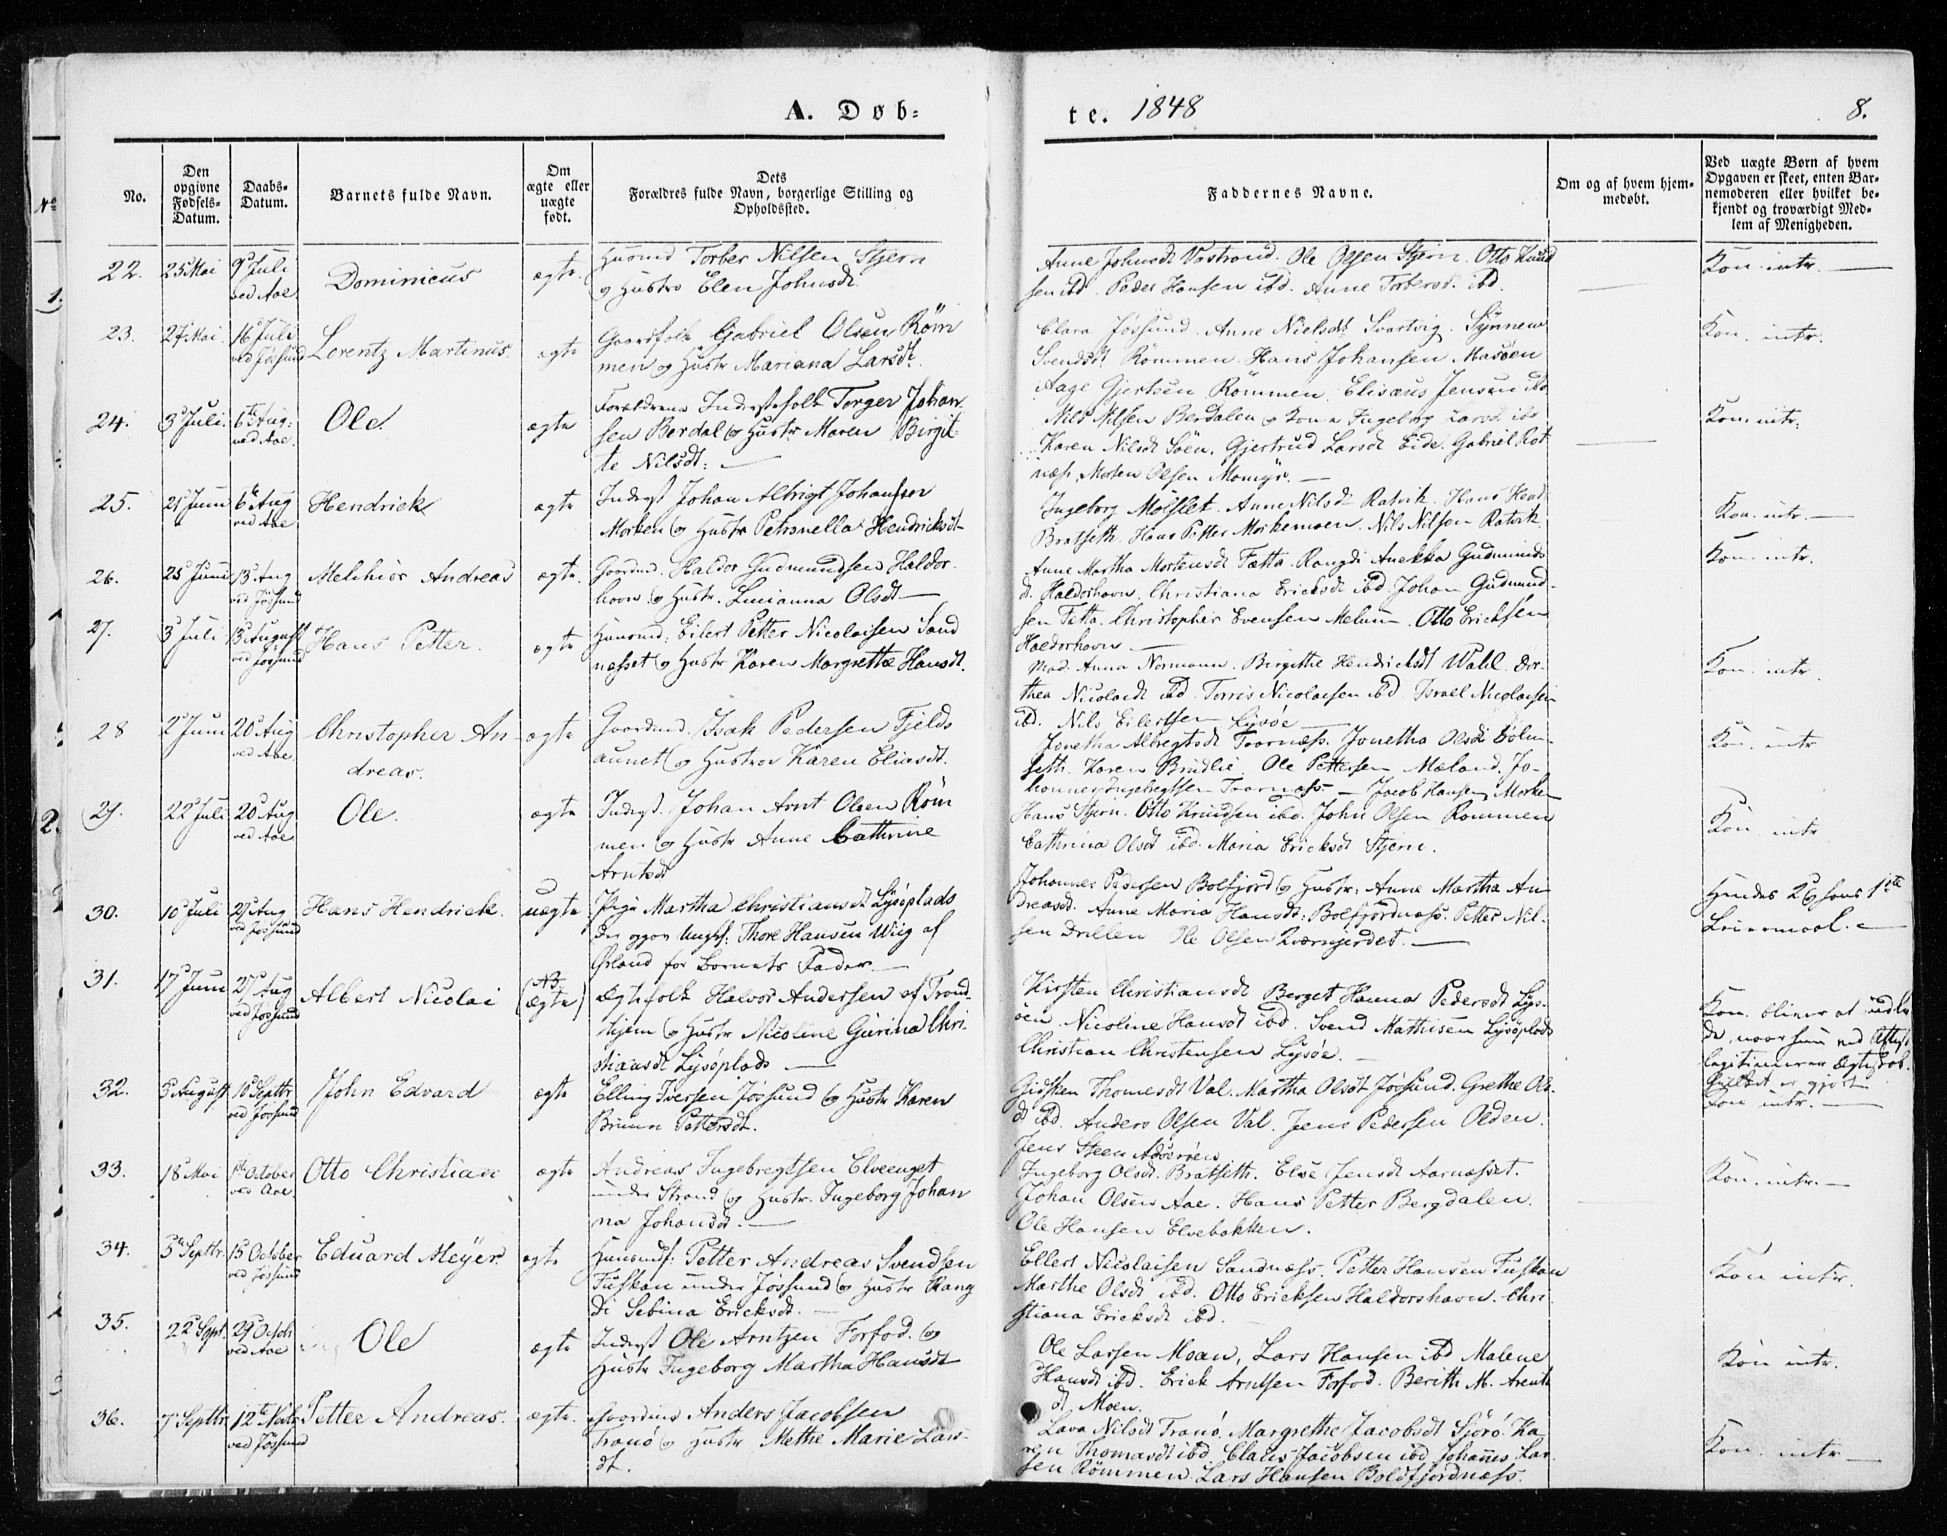 A. Døb=
te. 1848
8.
No.
Den opgivne Fødsels-Datum.
Daabs-Datum.
Barnets fulde Navn.
Om ægte eller uægte født.
Dets Forældres fulde Navn, borgerlige Stilling og Opholdssted.
Faddernes Navne.
Om og af hvem hjem-medøbt.
Ved uægte Børn af hvem Opgaven er skeet, enten Bar-nemoderen eller hvilket be-kjendt og troværdigt Med-lem af Menigheden.
22. 25 Mai 9 Juli ved Aae Dominicus ægte
Huusmd Torber Nilsen Stjern
og Hustro Elen Johnsdt.
Anne Johnsdt Vastrand. Ole Olsen Stjern. Otto Knud
sen ibd. Peder Hansen ibd. Anne Torbersd. ibd.
Kon. intr.
23. 27 Mai 16 Juli ved Jøssund Lorentz Martinus ægte
Gaardfolk Gabriel Olsen Röm
men og Hustr Mariana Larsdt.
Clara Jøssund. Anne Nielsdt Svartvig. Synnev
Svendsdt Römmen. Hans Johansen Masöen
Aage Gjertsen Römmen. Elisæus Jensen ibd
Kon. intr.
24. 3 Juli 6te Aug: ved Aae Ole ægte
Forældrene Inderstefolk Torger Johan
sen Berdal og Hustr Maren Birgit
te Nilsdt:
Nils Nilsen Berdalen og Kone Ingeborg Larsd. ibd
Karen Nilsdt Söen, Gjertrud Larsdt Eide. Gabriel Rot
næs, Morten Olsen Momyr.
Kon. intr.
25. 21 Juni 6te Aug ved Aae Hendrick ægte
Inderst Johan Albrigt Johansen
Morken og Hustr Petronella Hendricksdt
Ingeborg Mölslet. Anne Nilsdt Ratvik. Hans Hend
Bratseth. Hans Petter Morkemoen. Nils Nilsen Ratvik
Kon. intr.
26. 25 Juni 13 Aug ved Jøssund Melchior Andreas ægte
Gaardmd. Haldor Gudmundsen Haldor
havn og Hustr. Lucianna Olsdt
Anne Martha Mortensdt Fætta. Rangdi Anekka Gudmunds
d. Haldorhavn. Christiana Ericksdt ibd. Johan Gudmund-
sen Fetta. Christopher Evensen Melum. Otto Ericksen
Haldorhavn
Kon. intr.
27. 3 Juli 13 August ved Jøssund Hans Petter. ægte
Huusmd: Eilert Petter Nicolaisen Sand
næsset og Hustr Karen Margrethe Hansdt.
Mad. Anna Normann. Birgithe Hendricksdt Wahl. Dor-
thea Nicolaidt ibd. Torris Nicolaisen ibd. Israel Nicolaisen
ibd. Nils Eilertsen Lysöe
Kon. intr.
28 2 Juni 20 Aug ved Aae Christopher An-
dreas. ægte
Gaardmd. Isak Pedersen Fjelds
aunet og Hustroe Karen Eliasdt.
Jonetha Albregtsdt Traanæss. Jonetha Olsdt Holm-
seth. Karen Brudlie. Ole Pettersen Mæland. Jo-
hannes Ingebregtsen Traanæss. Jacob Hansen Morken
Kon. intr
29. 22 Juli 20 Aug ved Aae Ole. ægte
Inderst. Johan Arnt Olsen Röm
men og Hustr Anne Cathrine
Arntsdt
Hans Stjern. Otto Knudsen ibd. John Olsen Rommen
Cathrina Olsdt ibd. Maria Ericksdt Stjern.
Kon intr
30. 10 Juli 27 Aug ved Jøssund Hans Hendrick. uægte
Pige Martha Christiansdt Lysöplads
Der opgav Ungk: Thore Hansen Wiig af
Ørland for Barnets Fader
Johannes Pedersen Bolfjord og Hustr: Anne Martha An
dreasd. Anne Maria Hansdt: Bolfjordnæss. Petter Nil-
sen Drillen Ole Olsen Kværnjerdet.
Hendes 2 og hans 1ste
Leiermaal.
31. 17 Juni 27 Aug ved Jøssund Albert Nicolai (NB ægte)
Ægtefolk Halvor Andersen af Trond-
hjem og Hustr Nicoline Gurina Chri-
stiansdt Lysöplads
Kirsten Christiansdt Berget Hanna Pedersdt Lys-
öen. Nicoline Hansdt ibd. Svend Mathisen Lysöplads
Christian Christensen Lysöe.
Kon. bliver at
de, naar hun ved Attest
legitimerer Ægteskab.
hvilket er gjort
32. 5 August 10 Septbr ved Jøssund John Edvard ægte
Elling Iversen Jössund og Hustr Karen
Bruun Pettersdt.
Gidsken Thomesdt Val. Martha Olsdt Jøssund. Grethe Ols-
dt ibd. Anders Olsen Val. Jens Pedersen Olden.
Jens Steen
Kon intr.
33. 18 Mai 1te October ved Aae Otto Christian ægte
Andreas Ingebregtsen Elveenget
under Strand og Hustr. Ingeborg Johan
na Johansdt.
Ingeborg Olsdt. Bratseth. Else Jensdt Aarnæsset.
Johan Olsen Aae. Hans Petter Bergdalen.
Ole Hansen Elvebakken.
Kon. intr.
34. 5te Septbr. 15 October ved Jøssund Eduard Meÿer ægte
Huusmdf: Petter Andreas Svendsen
Fuskan under Jøssund og Hustr Rang
di Sebina Ericksdt.
Ellert Nicolaisen Sandnæss. Petter Hansen Fuskan
Marthe Olsdt ibd. Otto Ericksen Haldorshavn. Chri-
stiana Ericksdt ibd.
Kon intr.
35. 22 Sept. 29 Octob ved Aae Ole ægte
Inderst Ole Arntzen Forfod. og
Hustr Ingeborg Martha Hansdt
Ole Larsen Moan, Lars Hansen ibd Malene
Hansdt ibd. Erick Arntsen Forfod. Berith M. Arents
dt. Moen.
Kon intr.
36. 7 Septbr 12te Novbr ved Jøssund Petter Andreas. ægte.
Gaardmd Anders Jacobsen
Tranö og Hustr Methe Marie Lars-
dt.
Lava Nilsdt Tranö. Margrethe Jacobsdt Sjörö. Ka
ren Thomasdt ibd Claus Jacobsen ibd Johannes Lar-
sen Römmen. Lars Hansen Boldfjordnæss.
Kon. intr